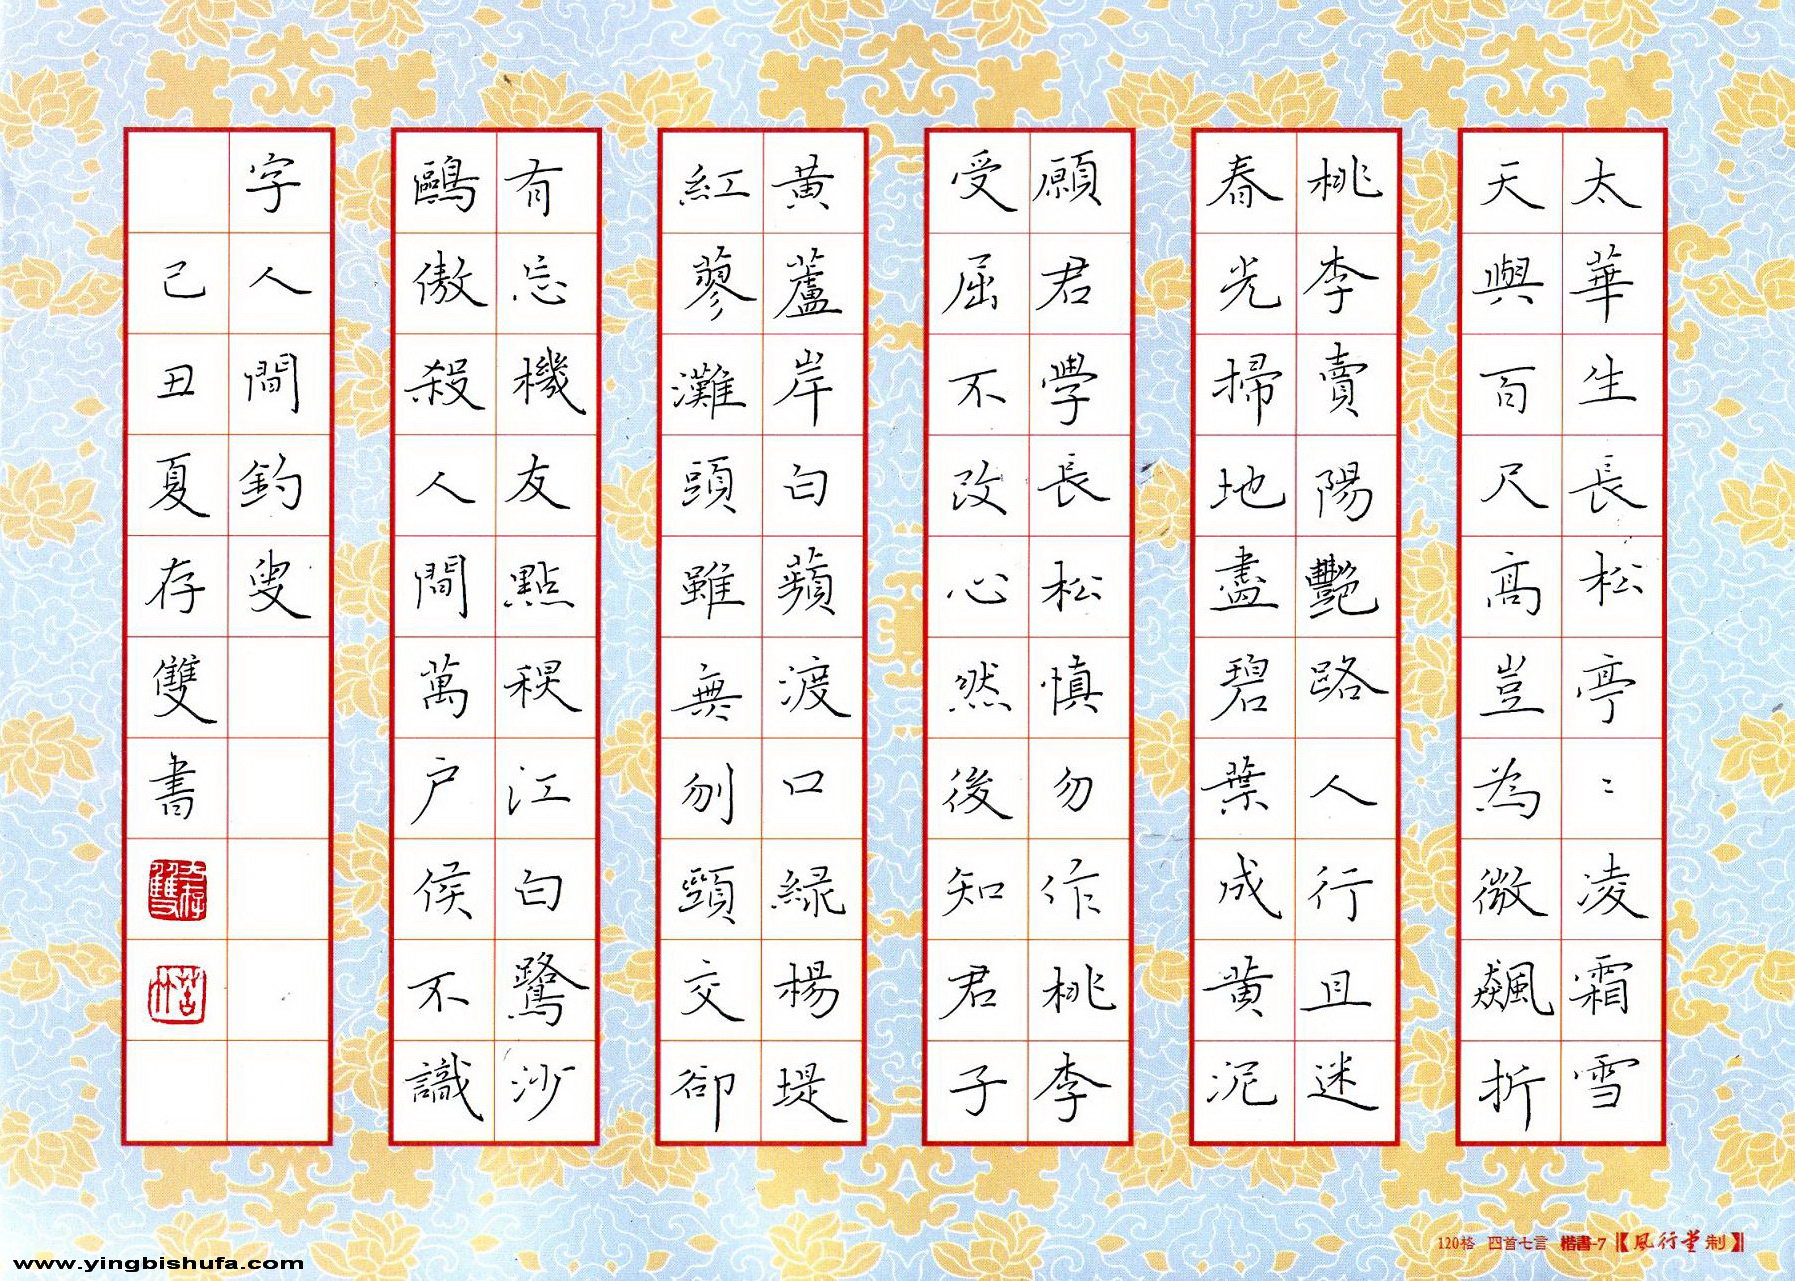 太華生長松亭〻凌霜雪
天與百尺高豈為微飆折
桃李賣陽艷路人行且迷
春光掃地盡碧葉成黃泥
願君學長松慎勿作桃李
受屈不改心然後知君子
黃蘆岸白蘋渡口綠楊堤
紅蓼灘頭雖無刎頸交卻
有忘機友點秋江白鷺沙
鷗傲殺人間萬户侯不識
字人間釣叟
己丑夏存雙書
120格 四首七言 楷書-7【風行堂制】
www.yingbishufa.com